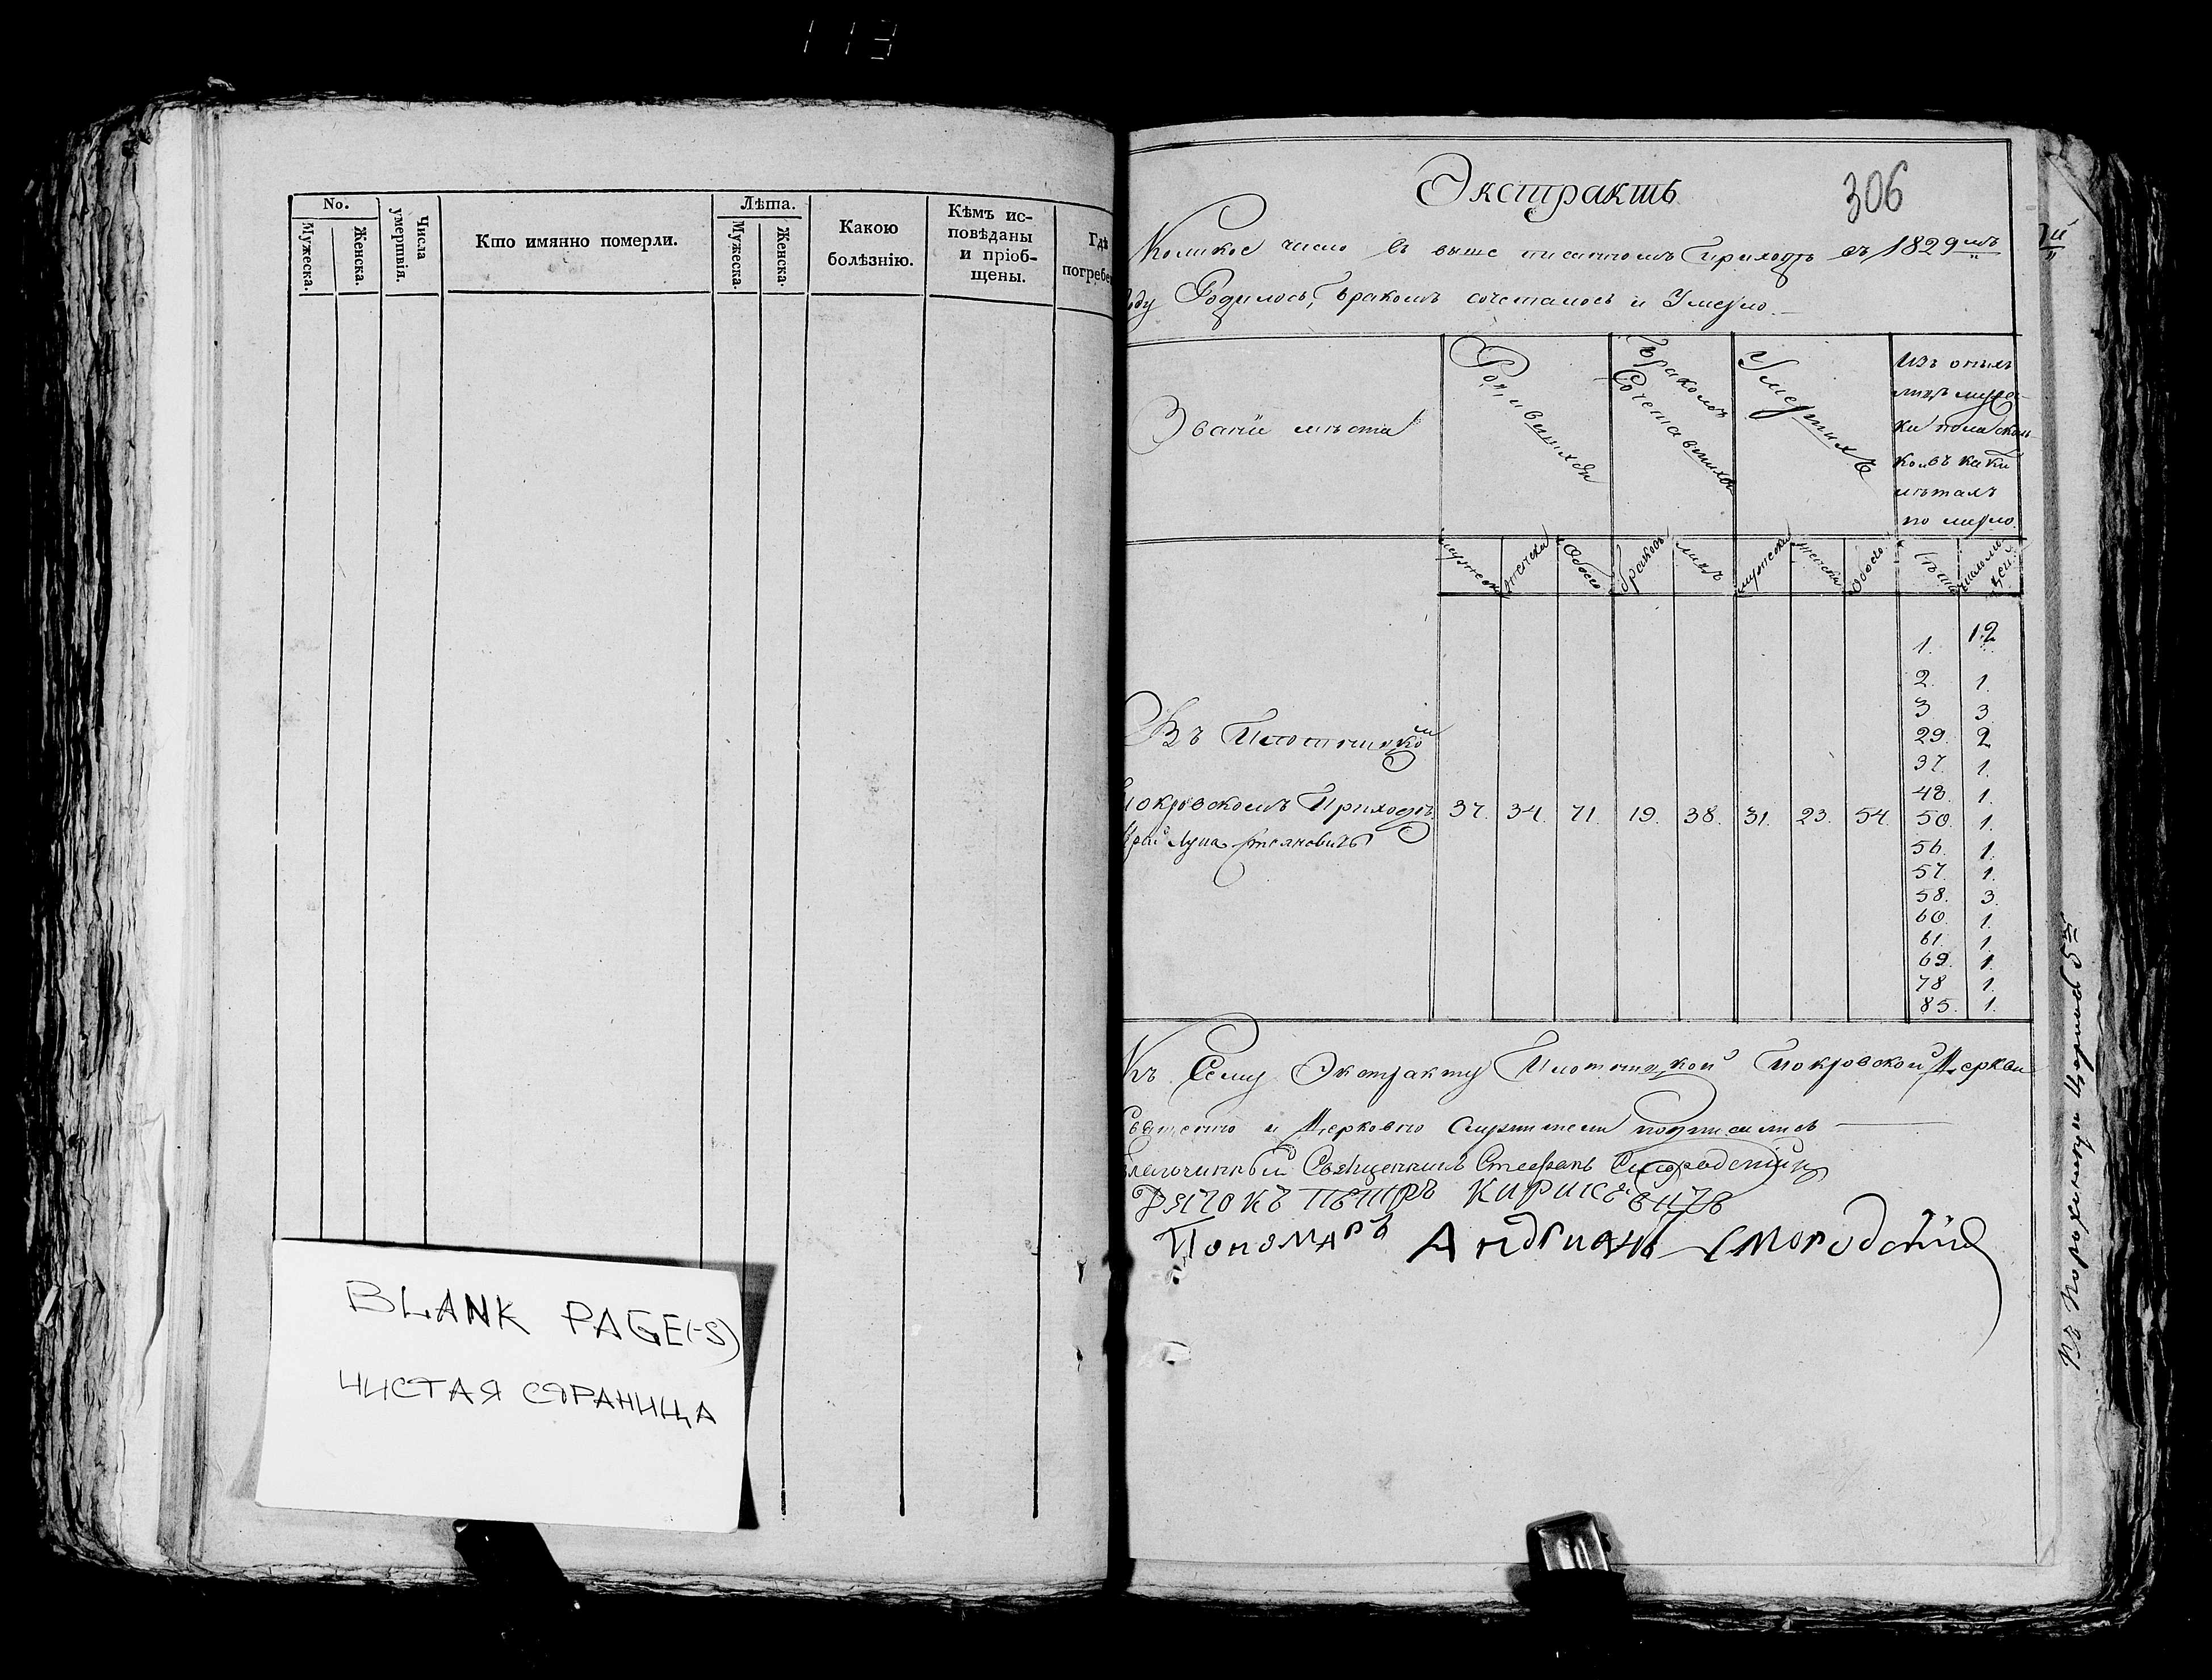 113
No.
Мужеска.
Женска.
Числа умертвія.
Кто имянно померли.
Лѣта.
Мужеска.
Женска.
Какою
болѣзнію.
Кѣмъ ис-
повѣданы
и пріоб-
щены.
Гдѣ
погребе
BLANK PAGE(-S)
ЧИСТАЯ СТРАНИЦА
Экстрактъ
306
Коликое число въ выше писанномъ Приходѣ въ 1829мъ
году Родилось, Бракомъ сочеталось и Умерло.
Званіи мѣста
Родившихся
Бракомъ
Сочетавшихся
Умершихъ
Изъ оныхъ
ки пола сколь
ко въ каки
лѣтахъ
по мерло.
мужеска
женска
Обоего
браковъ
лицъ
мужеска
женска
Обоего
Лѣта
1. 12
2. 1.
3 3.
29. 2
37. 1.
48. 1.
50. 1.
56. 1.
57. 1.
58. 3.
60. 1.
61. 1.
69. 1.
78 1.
85. 1.
Въ
Покровскомъ Приходѣ 37. 34. 71. 19. 38. 31. 23. 54.
Къ Сему Экстракту Покровской Церкви
Священно и Церковно Служители подписались
Благочинный Священникъ Стефанъ
Дячокъ Петръ Кирисевичъ
Пономаръ Андріанъ Смогодскій